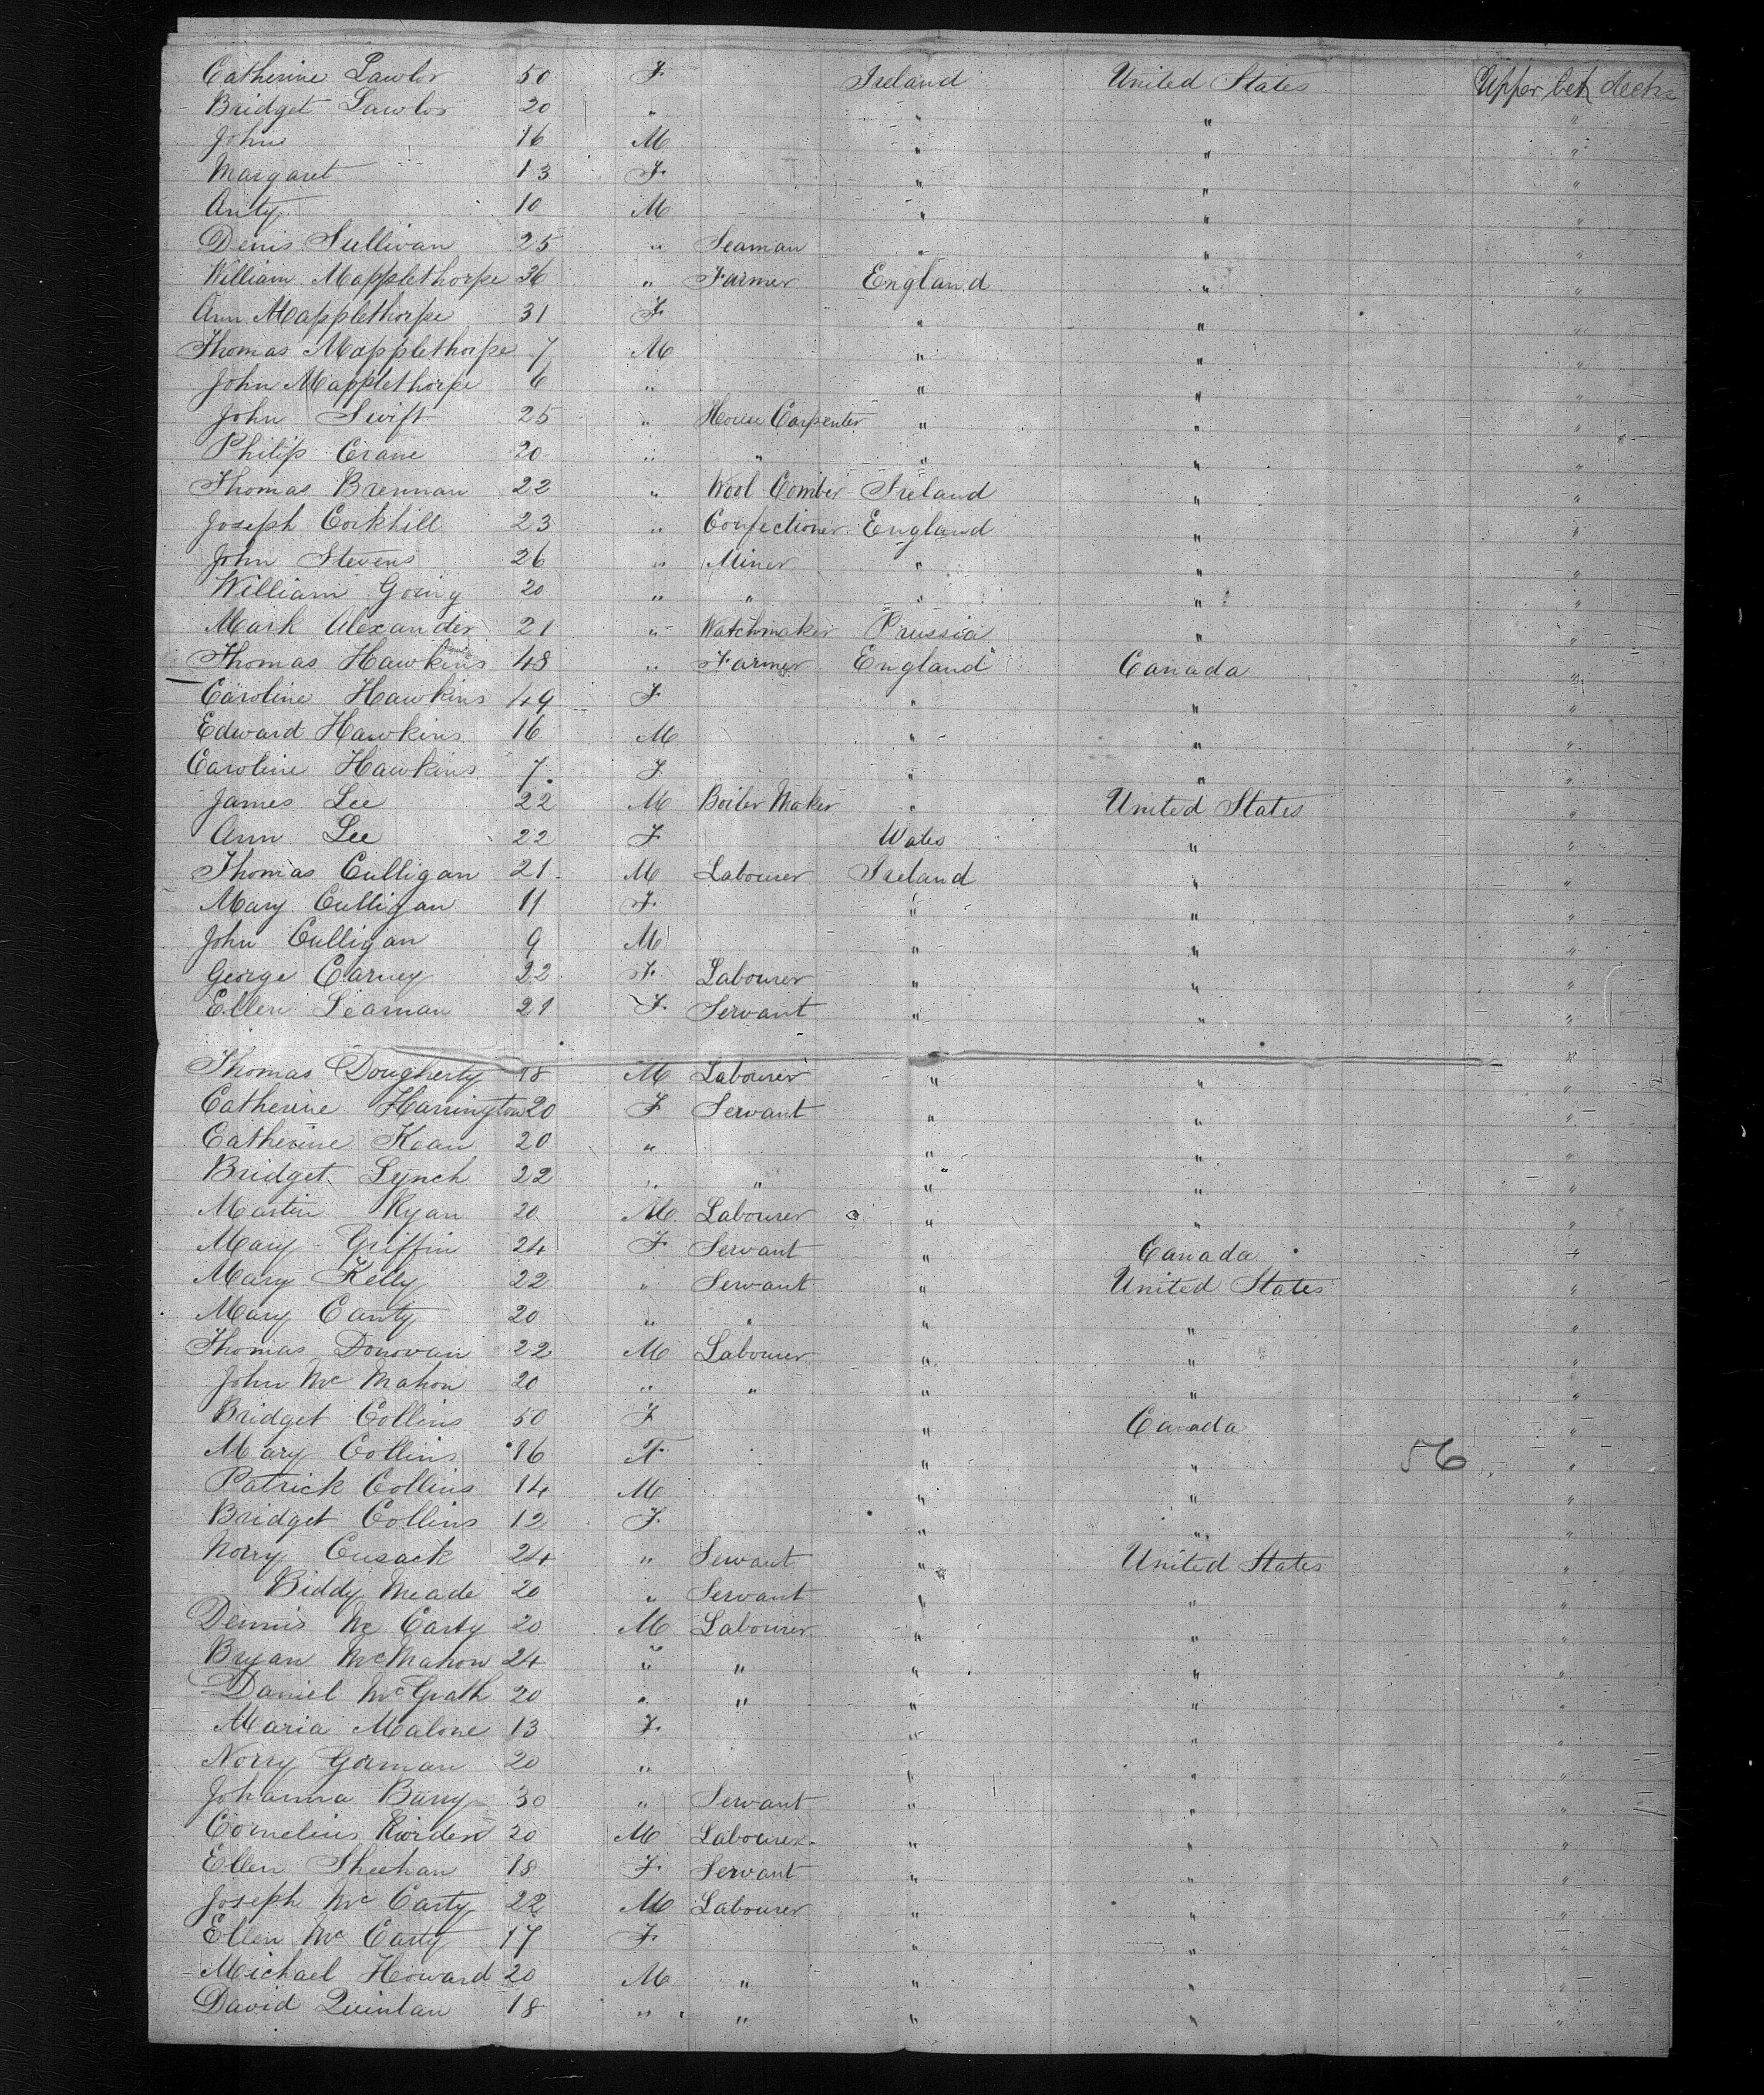 Catherine Lawlor 50 F Ireland United States Upper bet decks
Bridget Lawlor 20 " " " "
John 16 M " " "
Margaret 13 F " " "
Anty 10 M " " "
Denis Sullivan 25 " Seaman " " "
William Mapplethorpe 36 " Farmer England " "
Ann Mapplethorpe 31 F " " "
Thomas Mapplethorpe 7 M " " "
John Mapplethorpe 6 " " " "
John Swift 25 " House Carpenter " " "
Philip Crane 20 " " " " "
Thomas Brennan 22 " Wool Comber Ireland " "
Joseph Corkhill 23 " Confectioner England " "
John Stevens 26 " Miner " " "
William Going 20 " " " " "
Mark Alexander 21 " Watchmaker Prussia " "
Thomas Hawkins 48 " Farmer England Canada "
Caroline Hawkins 49 F " " "
Edward Hawkins 16 M " " "
Caroline Hawkins 7 F " " "
James Lee 22 M Boiler Maker " United States "
Ann Lee 22 F Wales " "
Thomas Culligan 21 M Labourer Ireland " "
Mary Culligan 11 F " " "
John Culligan 9 M " " "
George Carney 22 F Labourer " " "
Ellen Seaman 21 F Servant " " "
Thomas Dougherty 18 M Labourer " " "
Catherine Harrington 20 F Servant " " "
Catherine Kean 20 " " " "
Bridget Lynch 22 " " " " "
Martin Ryan 20 M Labourer " " "
Mary Griffin 24 F Servant " Canada "
Mary Kelly 22 " Servant " United States "
Mary Canty 20 " " " " "
Thomas Donovan 22 M Labourer " " "
John Mc Mahon 20 " " " " "
Bridget Collins 50 F " Canada "
Mary Collins 16 F " " 56 "
Patrick Collins 14 M " " "
Bridget Collins 12 F " " "
Norry Cusack 24 " Servant " United States "
Biddy Meade 20 " Servant " " "
Dennis Mc Carty 20 M Labourer " " "
Bryan McMahon 24 " " " " "
Daniel McGrath 20 " " " " "
Maria Malone 13 F " " "
Norry Gorman 20 " " " "
Johanna Barry 30 " Servant " " "
Cornelius Riorden 20 M Labourer " " "
Ellen Sheehan 18 F Servant " " "
Joseph Mc Carty 22 M Labourer " " "
Ellen Mc Carty 17 F " " "
Michael Howard 20 M " " " "
David Quinlan 18 " " " " "